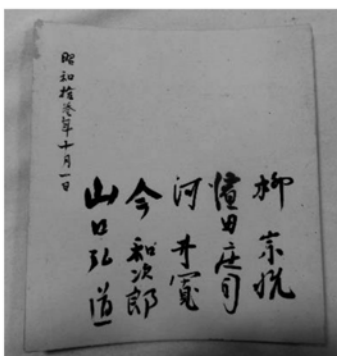 柳宗悦
濱田庄司
河井寛
今和次郎
山口弘道
昭和拾参年十月一日